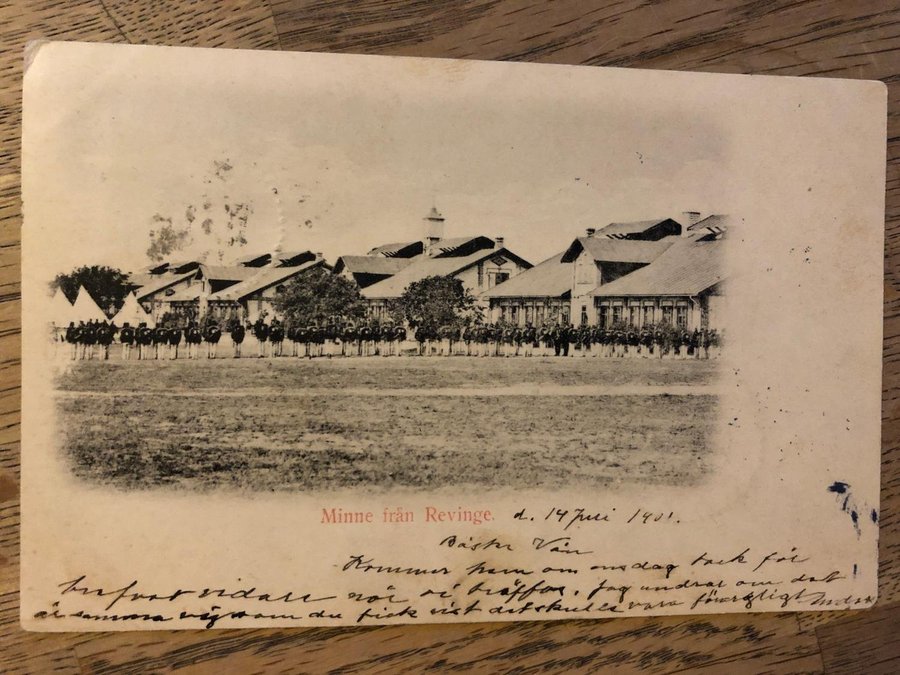 Minne från Revinge. d. 14 Juli 1901.
Bäste Vän
Kommer hem om onsdag tack för
brefvet vidare när vi träffas. Jag undrar om det
är samma väg som du fick vist det skulle vara förargligt